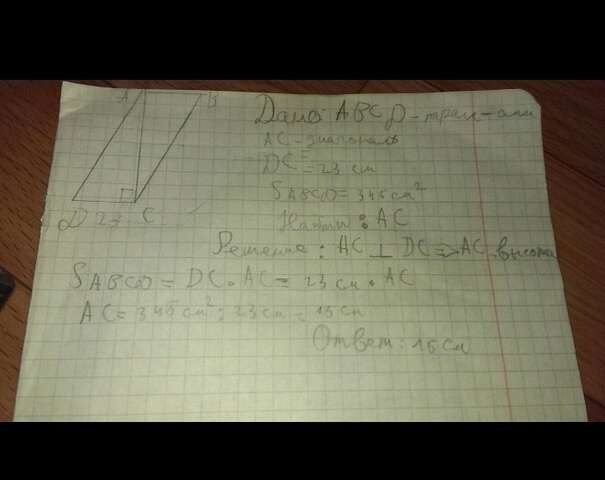 A B
Дано: ABCD -
AC - диагональ
DC = 23 см
SABCD = 345 см²
Найти: AC
D 23 C
Решение: AC ⊥ DC => AC высота
SABCD = DC · AC = 23 см · AC
AC = 345 см² : 23 см = 15 см
Ответ: 15 см